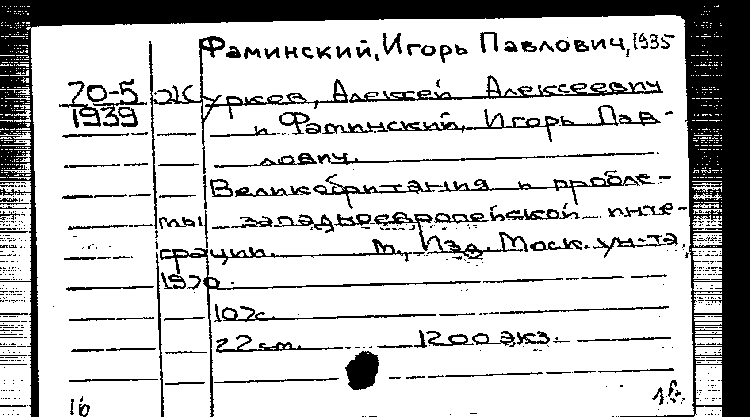 Фаминский, Игорь Павлович, 1935
70-5 Журкев, Алексей Алексеевич
1939 и Фаминский, Игорь Пав-
лович.
Великобритания и пробле-
мы западноевропейской инте-
грации. М., Изд. Моск. ун-та,
1970.
107с.
22 см. 1200 экз.
16